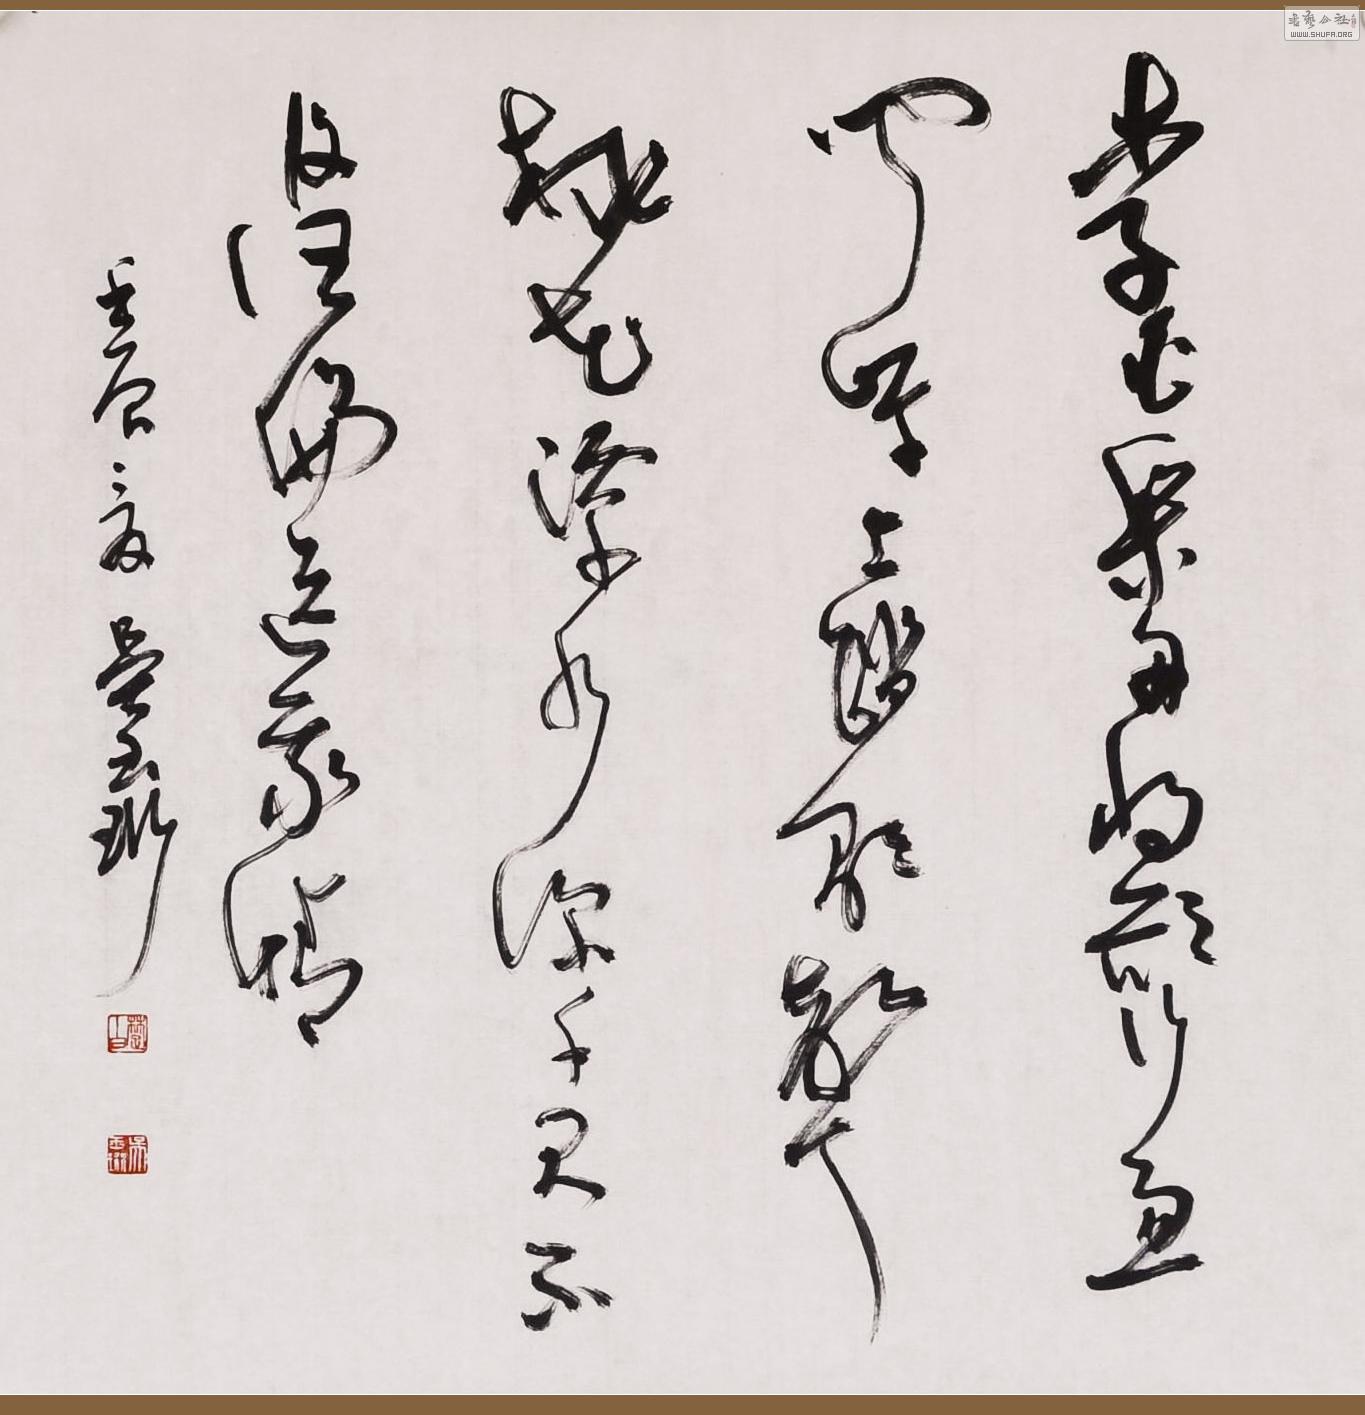 李白乘舟将欲行忽
闻岸上踏歌声
桃花潭水深千尺不
及汪伦送我情
壬辰之夏 吴玉珩
书艺公社
WWW.SHUFA.ORG